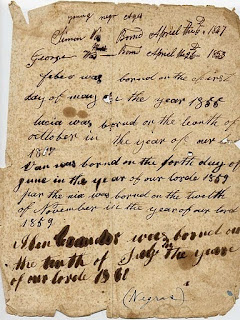 young negr ages
Simon was Bornd April the 15th 1827
George Was Bornd April the 26th 1853
febro was bornd on the first
day of may at the year 1855
lucia was bornd on the teanth of
october in the year of our l
1857
Van was bornd on the forth day of
june in the year of our lorde 1859
was bornd on the twelth
of November in the year of our lord
1859
was bornd on
the tenth of July the year
of our lorde 186
(Negros)